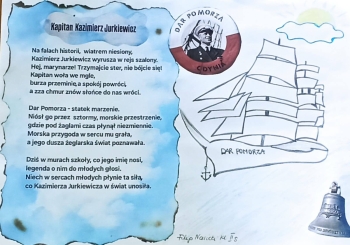 Kapitan Kazimierz Jurkiewicz
Na falach historii, wiatrem niesiony,
Kazimierz Jurkiewicz wyrusza w rejs szalony.
Hej, marynarze! Trzymajcie ster, nie bójcie się!
Kapitan woła we mgle,
burza przeminie, a spokój powróci,
a zza chmur znów słońce do nas wróci.
Dar Pomorza - statek marzenie.
Niósł go przez sztormy, morskie przestrzenie,
gdzie pod żaglami czas płynął niezmiennie.
Morska przygoda w sercu mu grała,
a jego dusza żeglarska świat poznawała.
Dziś w murach szkoły, co jego imię nosi,
legenda o nim do młodych głosi.
Niech w sercach młodych płynie ta siła,
co Kazimierza Jurkiewicza w świat unosiła.
DAR POMORZA
GDYNIA
DAR POMORZA
Filip